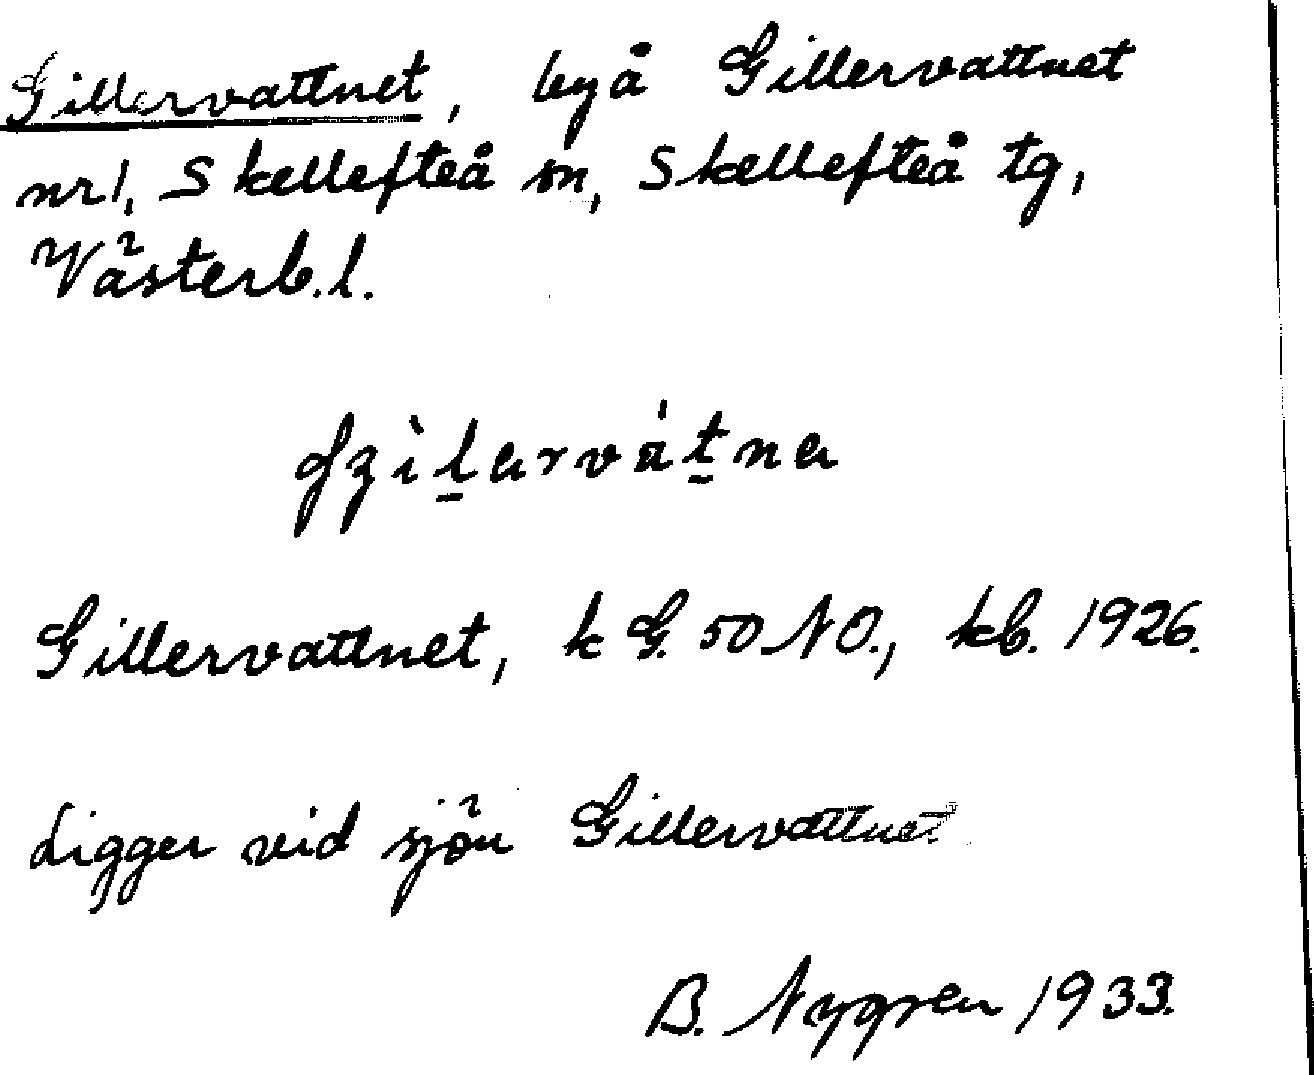 Gillervattnet, by å Gillervattnet
nr 1, Skellefteå sn, Skellefteå tg,
Västerb.l.
Gillervattnet, k G. 50 NO., kb. 1926.
Ligger vid sjön Gillervattnet.
B. Nygren 1933.